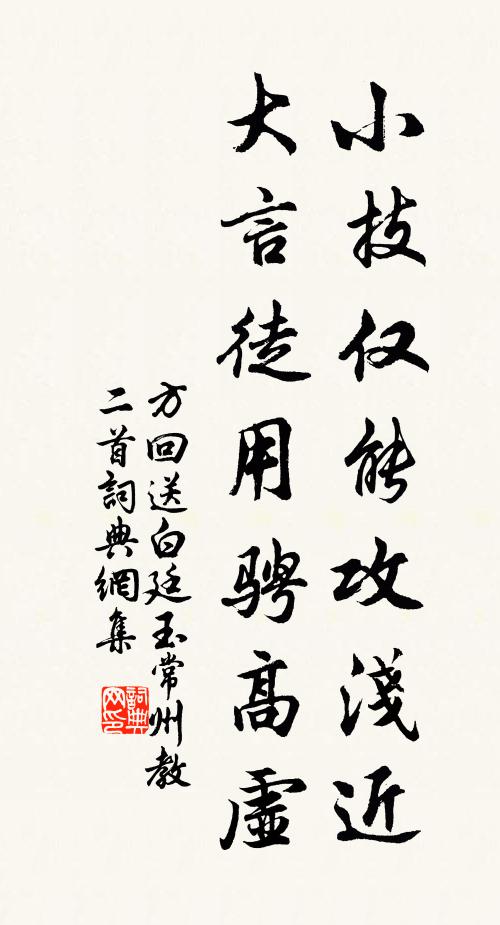 小技仅能攻淺近
大言徒用騁高虛
方回送白廷玉常州教
二首詞典網集
詞典网印